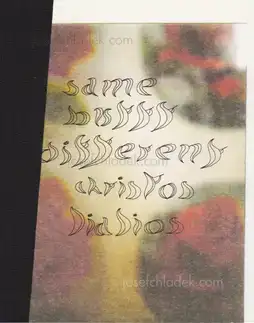 josefchladek.com
same
butty
different
christos
Diasios
josefchladek.com